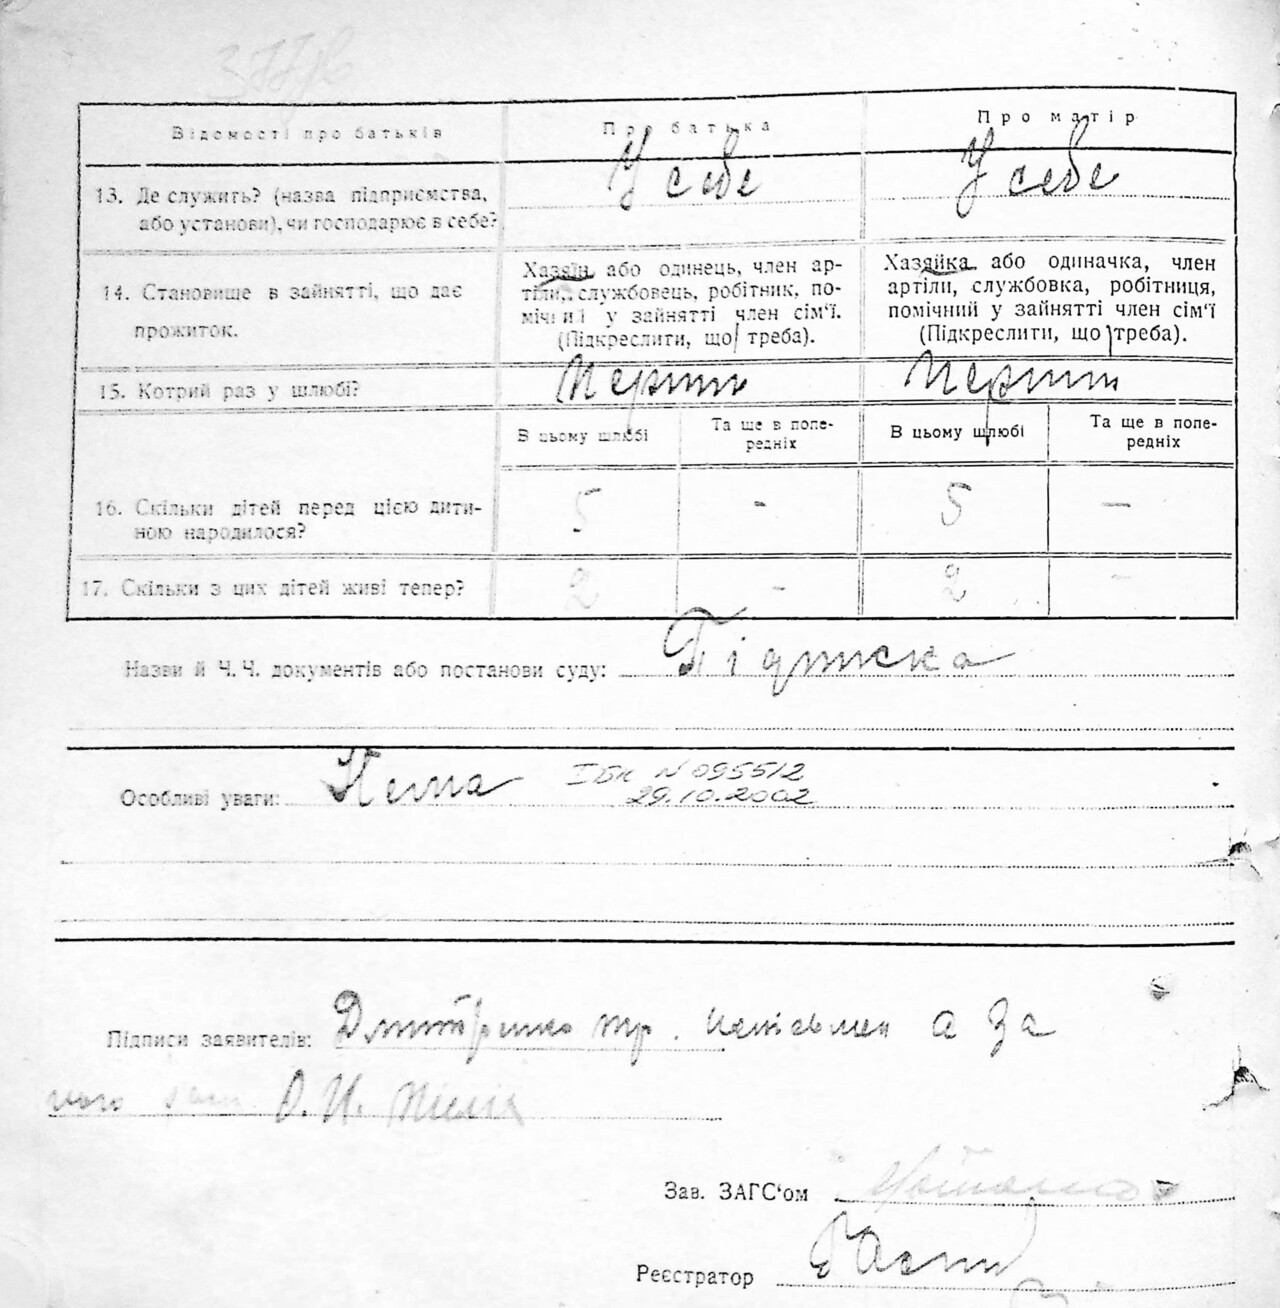 Відомості про батьків
Про батька
Про матір
13. Де служить? (назва підприємства, або установи), чи господарює в себе?
У себе
У себе
14. Становище в зайнятті, що дає прожиток.
Хазяїн або одинець, член ар-
тіли, службовець, робітник, по-
мічний у зайнятті член сім'ї.
(Підкреслити, що треба).
Хазяйка або одиначка, член
артіли, службовка, робітниця,
помічний у зайнятті член сім'ї
(Підкреслити, що треба).
15. Котрий раз у шлюбі?
Перший
Перший
В цьому шлюбі
Та ще в попе-
редніх
В цьому шлюбі
Та ще в попе-
редніх
16. Скільки дітей перед цією дити-
ною народилося?
5 - 5 —
17. Скільки з цих дітей живі тепер?
2 - 2 -
Назви й Ч. Ч. документів або постанови суду: Підписка
Особливі уваги: Нема ІБК N 095512
29.10.2002
Підписи заявителів: а За
нього О. И.
Зав. ЗАГС'ом
Реєстратор